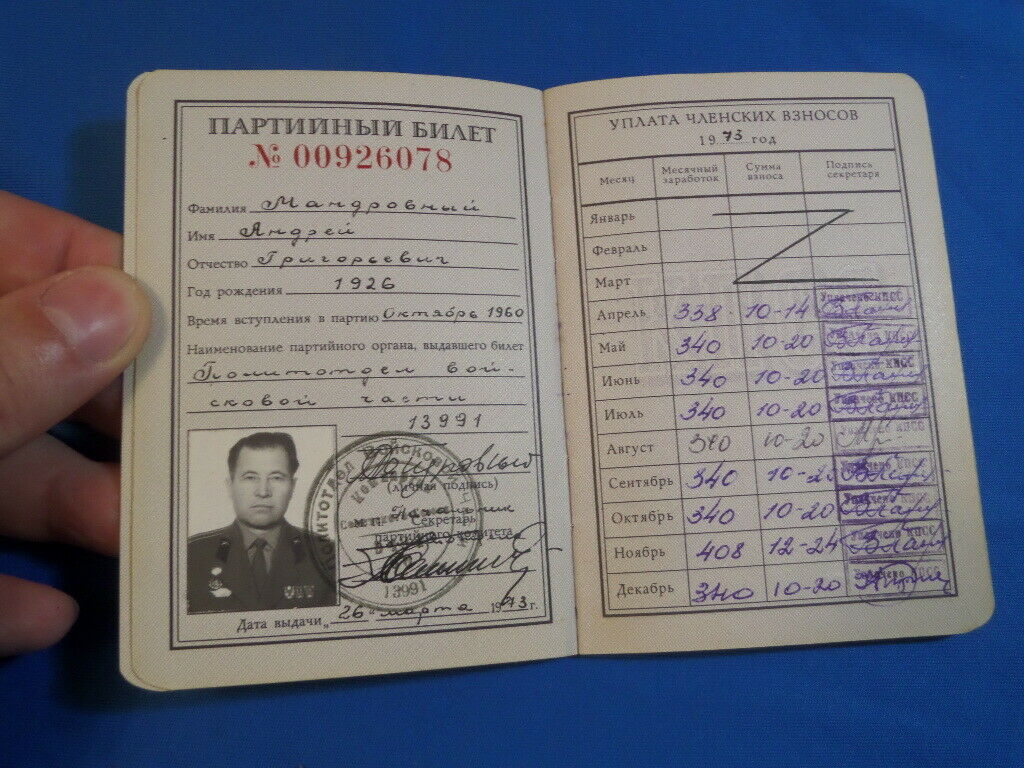 ПАРТИЙНЫЙ БИЛЕТ
№ 00926078
Фамилия Мандровный
Имя Андрей
Отчество Григорьевич
Год рождения 1926
Время вступления в партию Октябрь 1960
Наименование партийного органа, выдавшего билет
Политотдел вой-
сковой части
13991
(личная подпись)
М.П. Начальник
Секретарь
партийного комитета
ПОЛИТОТДЕЛ ВОЙСКОВОЙ
13991
Дата выдачи „26“ марта 1973 г.
УПЛАТА ЧЛЕНСКИХ ВЗНОСОВ
1973 год
Месяц Месячный заработок Сумма взноса Подпись секретаря
Январь
Февраль
Март
Апрель 338 - 10-14 Уплачено КПСС
Май 340 10-20
Июнь 340 10-20 Уплачено КПСС
Июль 340 10-20 Уплачено КПСС
Август 340 10-20 Уплачено КПСС
Сентябрь 340 10-20 Уплачено КПСС
Октябрь 340 10-20 Уплачено КПСС
Ноябрь 408 12-24 Уплачено КПСС
Декабрь 340 10-20 Уплачено КПСС